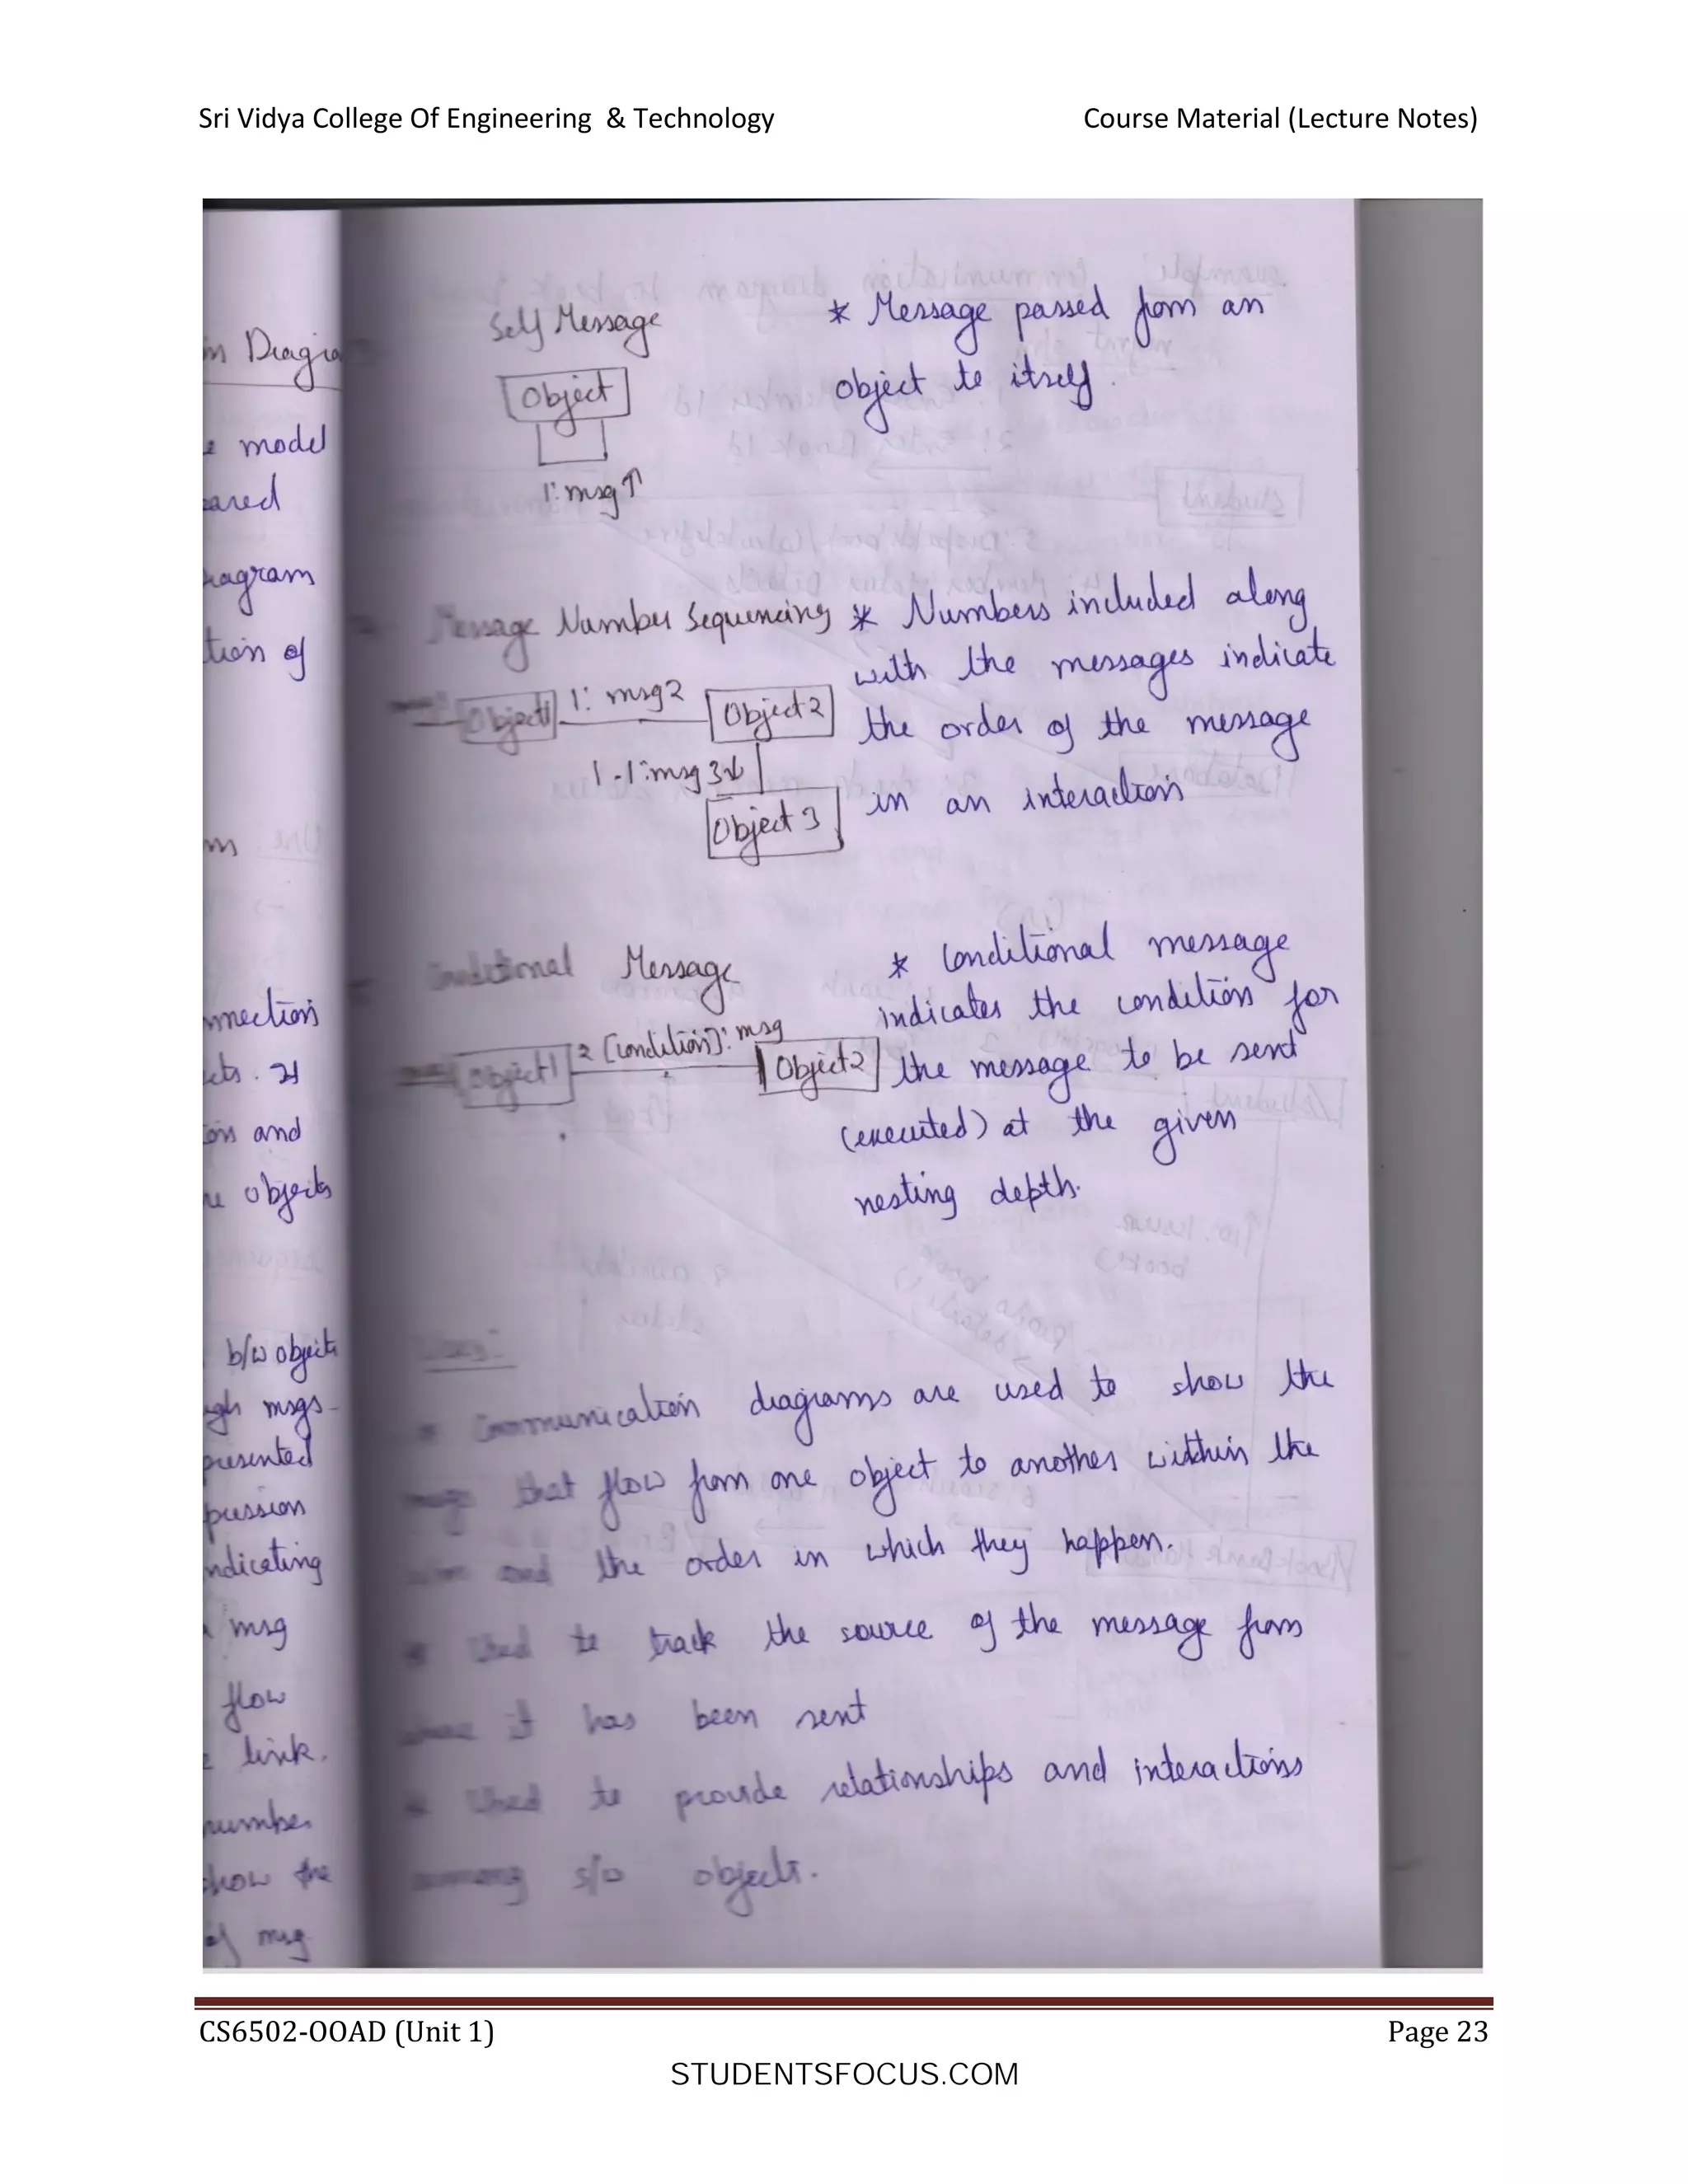 Sri Vidya College Of Engineering & Technology Course Material (Lecture Notes)
n Diagra
model
ared
agram
tion of
m
nnection
cts. It
and
objects
b/w objects
gh msgs
presented
pression
ndicating
msg
flow
link.
number
show the
of msg
Self Message
Object
1: msg ↑
* Message passed from an
object to itself.
Message Number Sequencing
Object1
1: msg2
Object2
1.1: msg 3↓
Object 3
* Numbers included along
with the messages indicate
the order of the message
in an interaction
Conditional Message
Object1
2 [condition]: msg
Object2
* Conditional message
indicates the condition for
the message to be sent
(executed) at the given
nesting depth.
Uses:-
* Communication diagrams are used to show the
msgs that flow from one object to another within the
and the order in which they happen.
* Used to track the source of the message from
where it has been sent
* Used to provide relationships and interactions
among s/w objects.
CS6502-OOAD (Unit 1) Page 23
STUDENTSFOCUS.COM